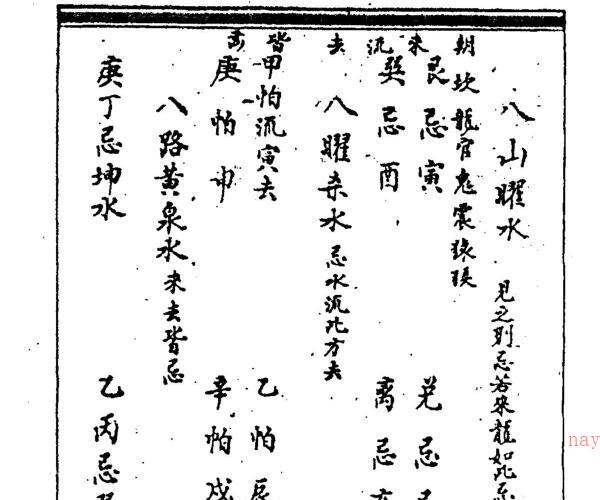 朝來流去皆忌
八山曜水 見之則忌若來龍如此忌
坎龍官鬼震猿猴
艮忌寅 兌忌
巽忌酉 离忌
八曜杀水 忌水流此方去
甲怕流寅去 乙怕辰
庚怕申 辛怕戍
八路黃泉水 來去皆忌
庚丁忌坤水 乙丙忌
nay